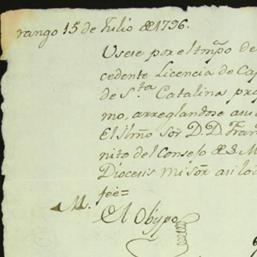 rango 15 de Julio de 1796.
Usese por el tmpo de
cedente Licencia de Ca
de Sta Catalina pre
mo, arreglandose a su
El Ilmo Sor D. D. Fran
nito del Consejo de S. M
Diocesis mi Sor asi lo
feé=
M.
El Obispo